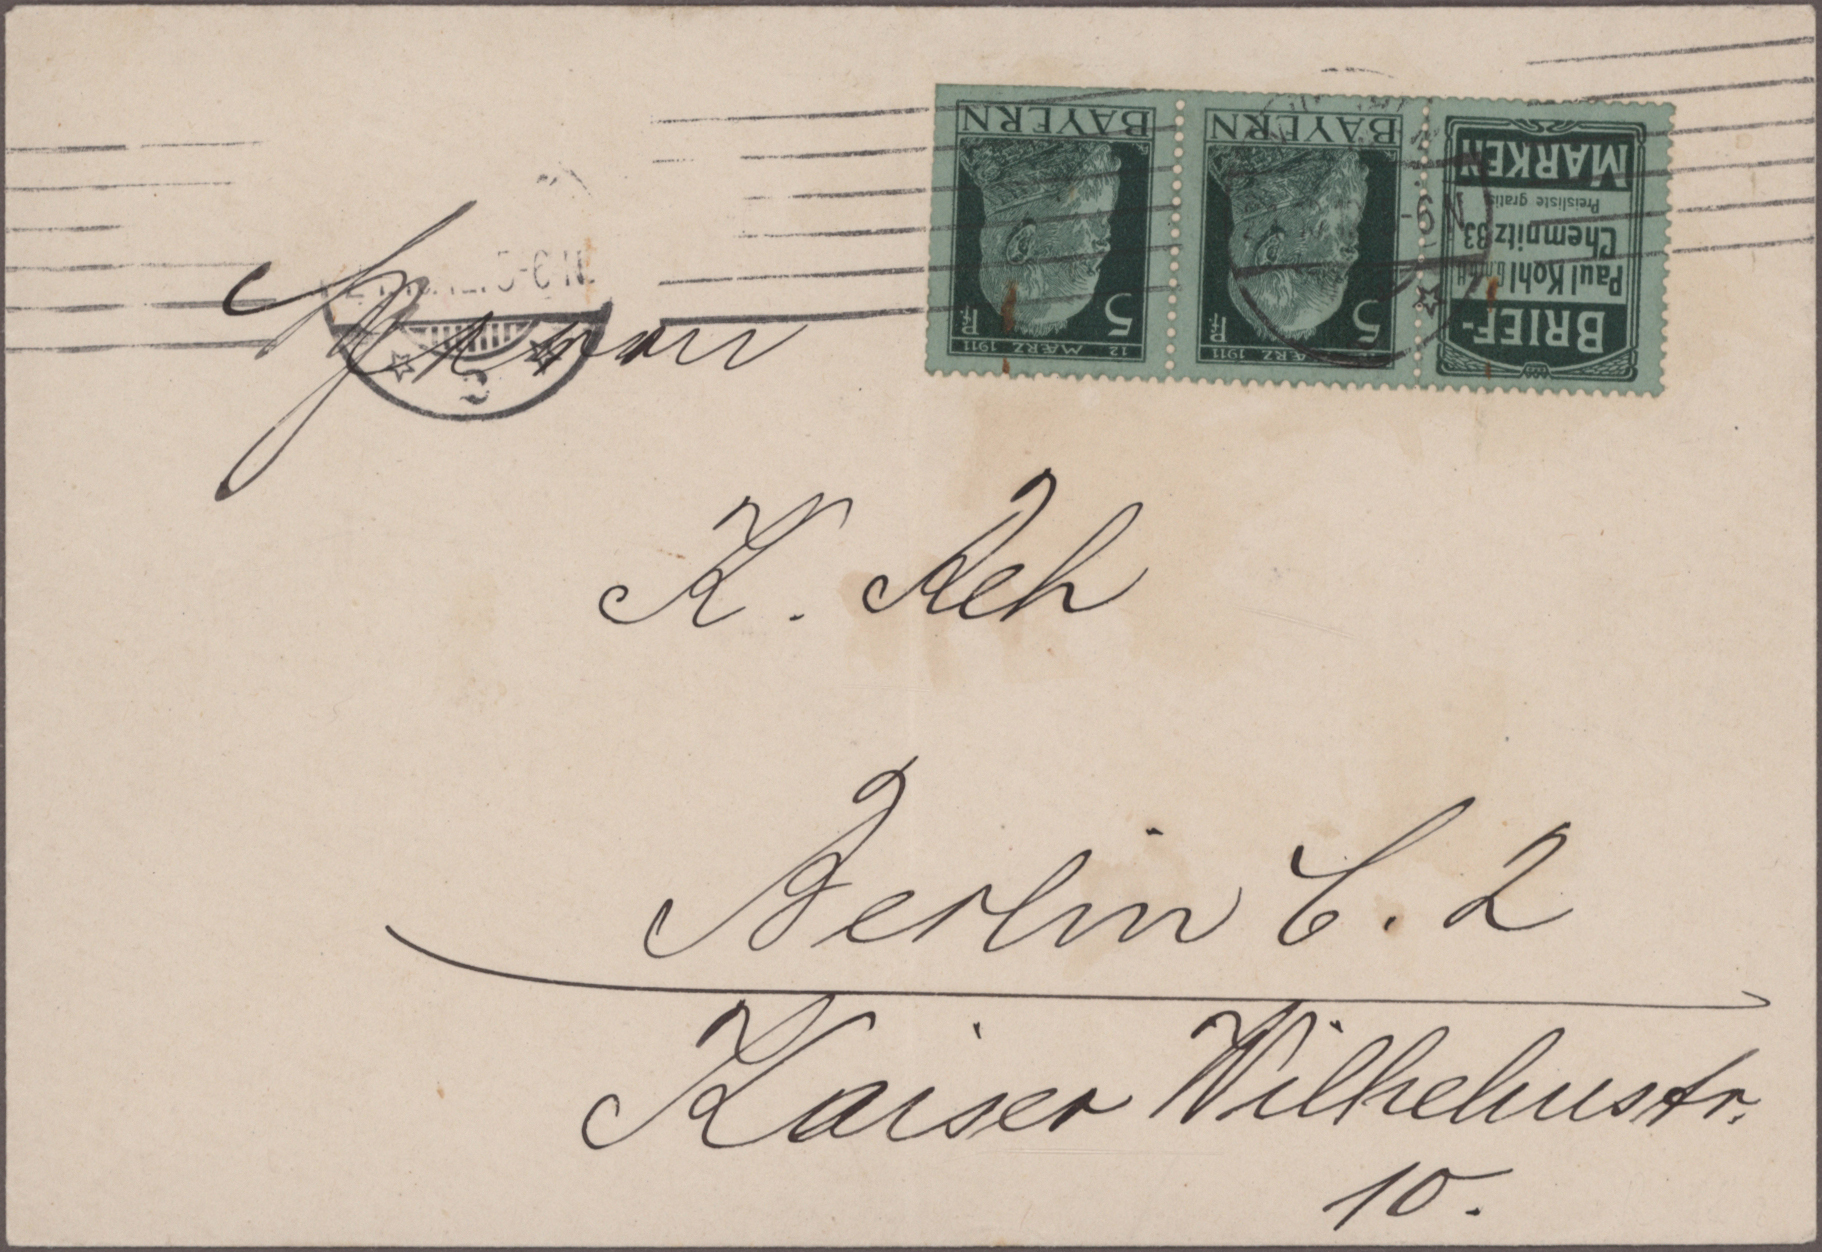 BAYERN
5 Pf
12. MÆRZ 1911
BAYERN
5 Pf
12. MÆRZ 1911
BRIEF-
Paul Kohl
Chemnitz 33
Preisliste gratis
MARKEN
5-6 N.
-6 N
Herrn
K. Reh
Berlin C. 2
Kaiser Wilhelmstr.
10.